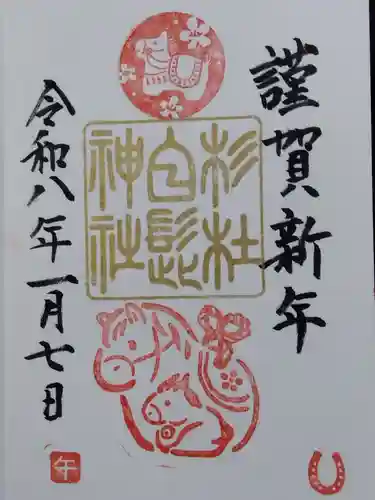 謹賀新年
杉杜
白髭
神社
令和八年一月七日
午